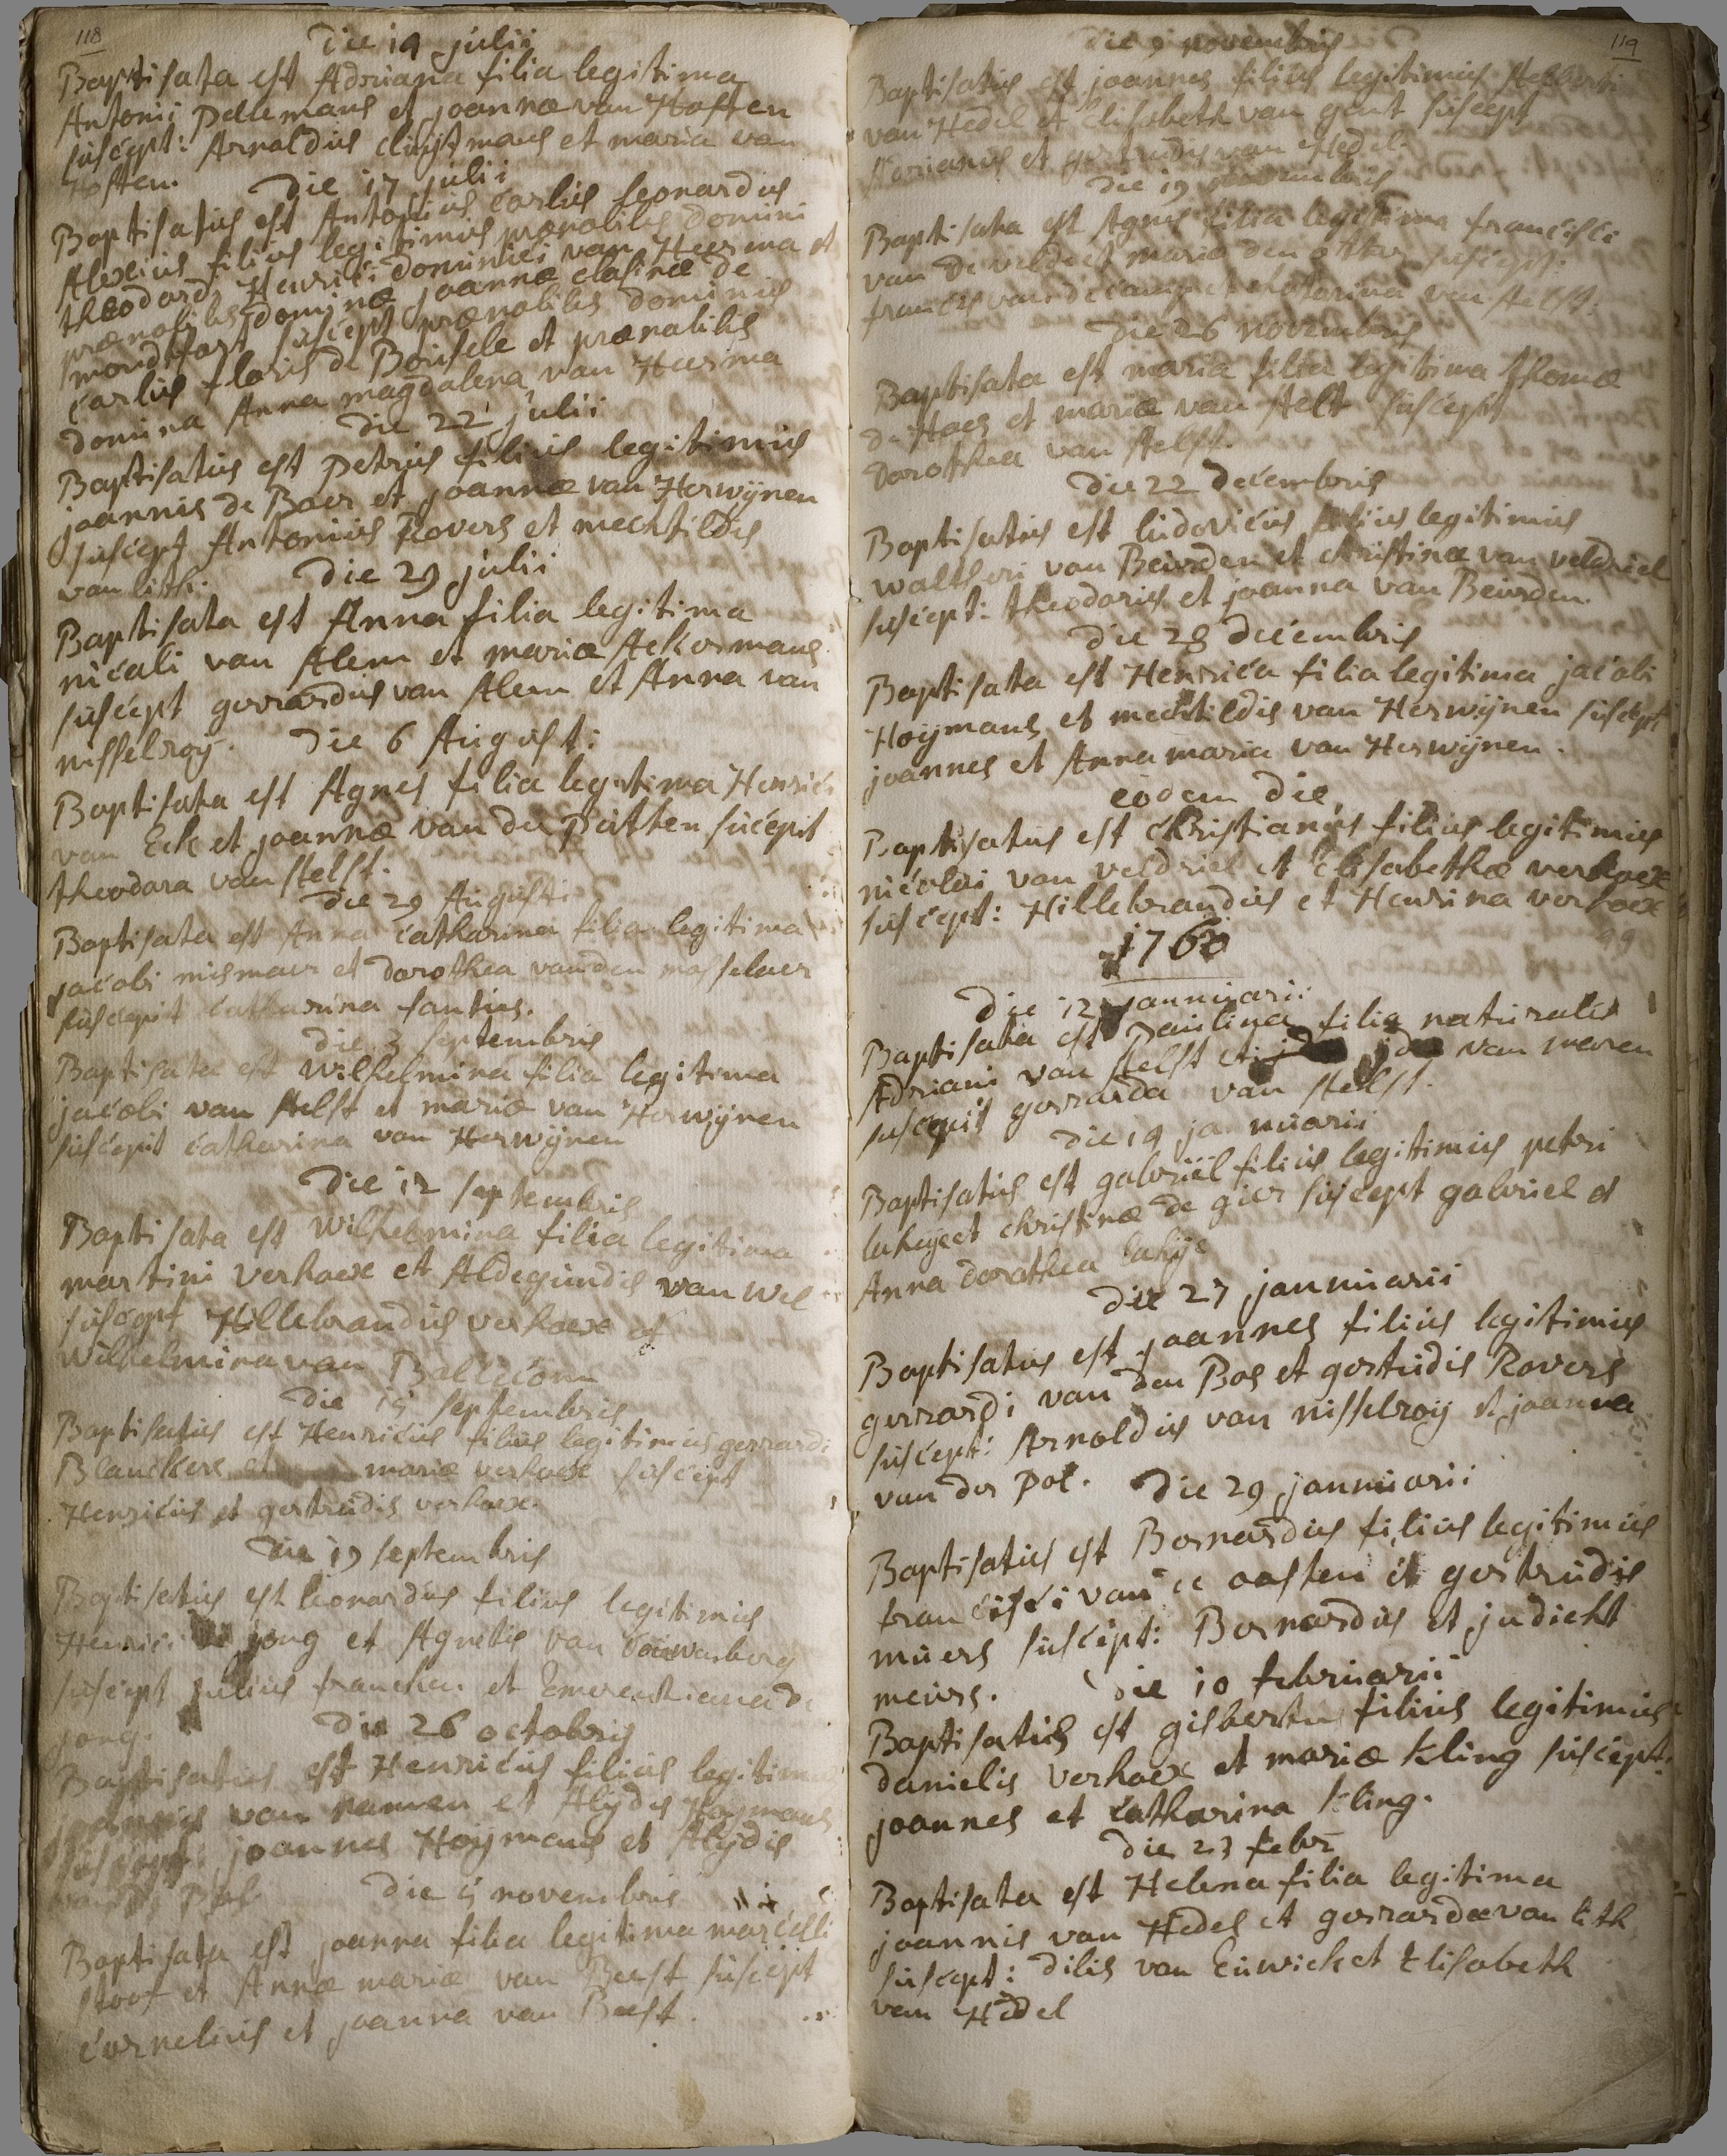 118
Die 14 julii
Baptisata est Adriana filia legitima
Antonii pellemans et joannæ van Hoften
suscept: Arnoldus cluijtmans et maria van
Hoften.
Die 17 julii
Baptisatus est Antonius carlus leonardus
Alexius filius legitimus prænobilis domini
theodori Henrici dominici van Heersma et
prænobilis dominæ joannæ clasinæ de
mondtfort suscept prænobilis dominus
carlus floris de Bousele et prænobilis
domina Anna magdalena van Heersma
die 22 julii
Baptisatus est petrus filius legitimus
joannis de Baer et joannæ van Herwijnen
suscept Antonius Rovers et mechtildis
van lith.
Die 29 julii
Baptisata est Anna filia legitima
nicolai van Alem et mariæ Ackermans
suscept gerrardus van Alem et Anna van
nisselroij.
Die 6 August:
Baptisata est Agnes filia legitima Henrici
van Eck et joannæ van der putten suscepit
theodora van Aelst.
die 29 Augusti
Baptisata est Anna catharina filia legitima
jacobi mismaer et dorothea vanden masselaer
suscepit catharina santius.
die 3 septembris
Baptisata est Wilhelmina filia legitima
jacobi van Aelst et mariæ van Herwijnen
suscepit catharina van Herwijnen
Die 12 septembris
Baptisata est Wilhelmina filia legitima
martini verhoex et Aldegundis van Wel
suscept Hillebrandus verhoex et
Wilhelmina van Ballecom
die 15 septembris
Baptisatus est Henricus filius legitimus gerrardi
Blanckers et mariæ verhoex suscept
Henricus et gertrudis verhoex.
Die 19 septembris
Baptisatus est leonardus filius legitimus
Henrici de jong et Agnetis van
suscept francken et Emerentiana de
jong.
Die 26 octobris
Baptisatus est Henricus filius legitimus
joannis van namen et Alijdis Hoijmans
suscept: joannes Hoijmans et Alijdis
van der Pol.
die 5 novembris
Baptisata est joanna filia legitima marcelli
stoof et Annæ mariæ van Beest suscept
cornelius et joanna van Beest.
119
die 9 novembris
Baptisatus est joannes filius legitimus
van Hedel et Elisabeth van gent suscept
Adrianus et gertrudis van Hedel.
die 19 novembris
Baptisata est Agnes filia legitima francisci
van de velde et mariæ den otter suscept:
francis van de camp et catharina van Aelst.
Die 26 novembris
Baptisata est maria filia legitima thomæ
de Haes et mariæ van Aelst suscepit
Dorothea van Aelst.
Die 22 Decembris
Baptisatus est ludovicus filius legitimus
waltheri van Beurden et christinæ van veldriel
suscept: theodorus et joanna van Beurden.
Die 28 Decembris
Baptisata est Henrica filia legitima jacobi
Hoijmans et mechtildis van Herwijnen suscept
joannes et Anna maria van Herwijnen.
eodem Die
Baptisatus est christianus filius legitimus
nicolai van veldriel et Elisabethæ verhoex
suscept: Hillebrandus et Henrina verhoex
1760
Die 12 januarii
Baptisata est paulina filia naturalis
Adriani van Aelst et ida van maren
suscepit gerrarda van Aelst.
Die 19 januarii
Baptisatus est gabriel filius legitimus petri
lakeije et christinæ de gier suscept gabriel et
Anna dorothea lakije
Die 27 januarii
Baptisatus est joannes filius legitimus
gerrardi van den Bos et gertrudis Rovers
suscept: Arnoldus van nisselroij et joanna
van der Pol.
Die 29 januarii
Baptisatus est Bernardus filius legitimus
francisci van oosten et gertrudis
muers suscept: Bernardus et judicht
meurs.
Die 10 februarii
Baptisatus est gisbertus filius legitimus
danielis verhoex et mariæ kling suscept:
joannes et catharina kling.
die 23 febr
Baptisata est Helena filia legitima
joannis van Hedel et gerrardæ van lith
suscept: dilis van Euwick et Elisabeth
van Hedel